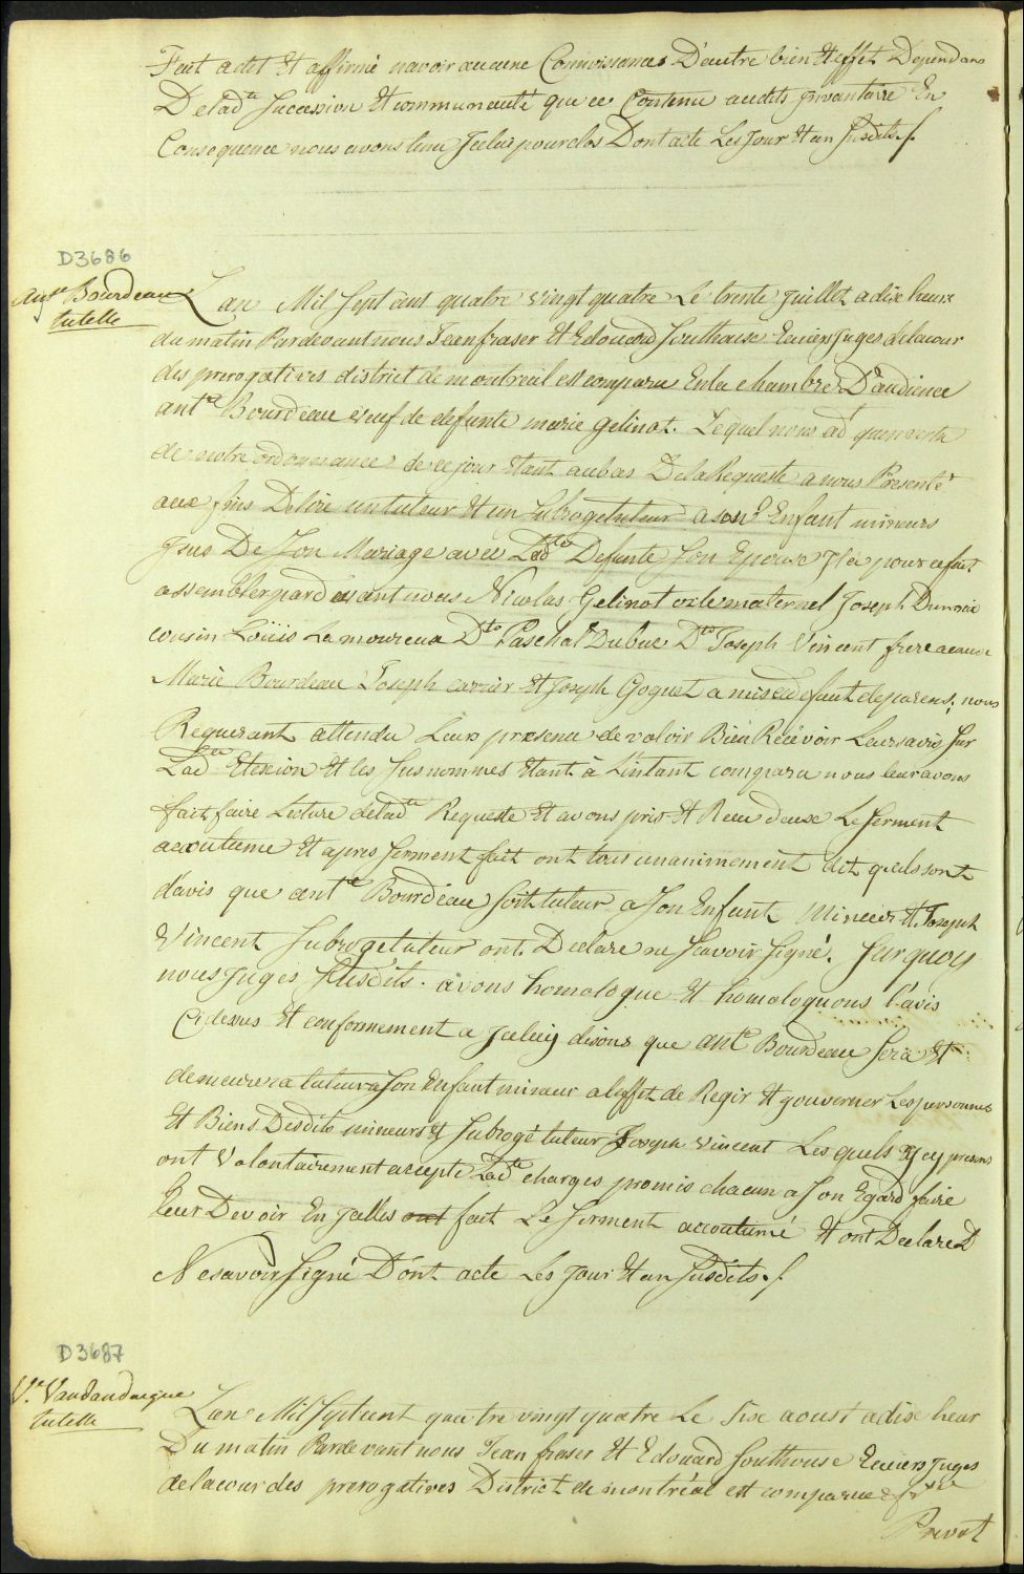 Fait a dit Et affirmé navoir aucune Connoissances D'autre bien Et effet Dependans
De lad.te Succession Et communauté que ce Contenu audits jnvantaire En
Consequence nous avons tenu Jcelui pour clos Dont acte Les Jour Et an susdits./.
D3686
Ant.e Bourdeau
tutelle
Lan Mil Sept cent quatre vingt quatre Le trente Juillet a dix heure
du matin Pardevant nous Jean fraser Et Edouard Southouse Ecuiers Juges de la cour
des prerogatives district de montreal est comparu En la chambre D'audience
ant.e Bourdeau veuf de defunte marie gelinot. Lequel nous a dt quen vertu
de notre ordonnance de ce jour Etant au bas De la Requeste a nous Presenté
aux fins Delire un tuteur Et un Subrogé tuteur a son Enfant mineurs
Jssus De Son Mariage avec Lad.te Defunte Son Epouse Jl a pour cefait
assembler pardevant nous Nicolas Gelinot oncle maternel Joseph
cousin Loüis Lamoureux D.to Paschal Dubuc D.to Joseph Vincent frere a cause
Marie Bourdeau Joseph Et Joseph Goguet amis au defaut de parens, nous
Requerant attendu Leur presence de voloir Bien Recevoir Leurs avis Sur
Lad.te Election Et les Susnommés Etant à Lintant comparu nous leur avons
fait faire Lecture de lad.te Requeste Et avons pris Et Recu deux Le Serment
accoutume Et apres Serment fait ont tous unanimement dit quils sont
d'avis que ant.e Bourdeau Soit tuteur a Son Enfant Mineur Et Joseph
Vincent Subrogetuteur ont Declare ne Scavoir Signé. Sur quoy
nous Juges Susdits. avons homologue Et homologuons l'avis
Cidessus Et conformement a Jceluy disons que ant.e Bourdeau Sera Et
demeurera tuteur a Son Enfant mineur a leffet de Regir Et gouverner Les personnes
Et Biens Desdits mineurs Et Subrogé tuteur Joseph Vincent Les quels Jcy presens
ont Volontairement accepté Lad.te charges promis chacun a Son Egard faire
Leur Devoir En Jcelles ont fait Le Serment accoutumé Et ont Declare
Ne savoir Signé Dont acte Les Jour Et an Susdits./.
D3687
V.e Vandandaigue
tutelle
Lan Mil Septcent quatre vingt quatre Le Six aoust a dix heur
Du matin Pardevant nous Jean fraser Et Edouard Southouse Ecuiers Juges
de la cour des prerogatives District de montréal est comparue
Prevot